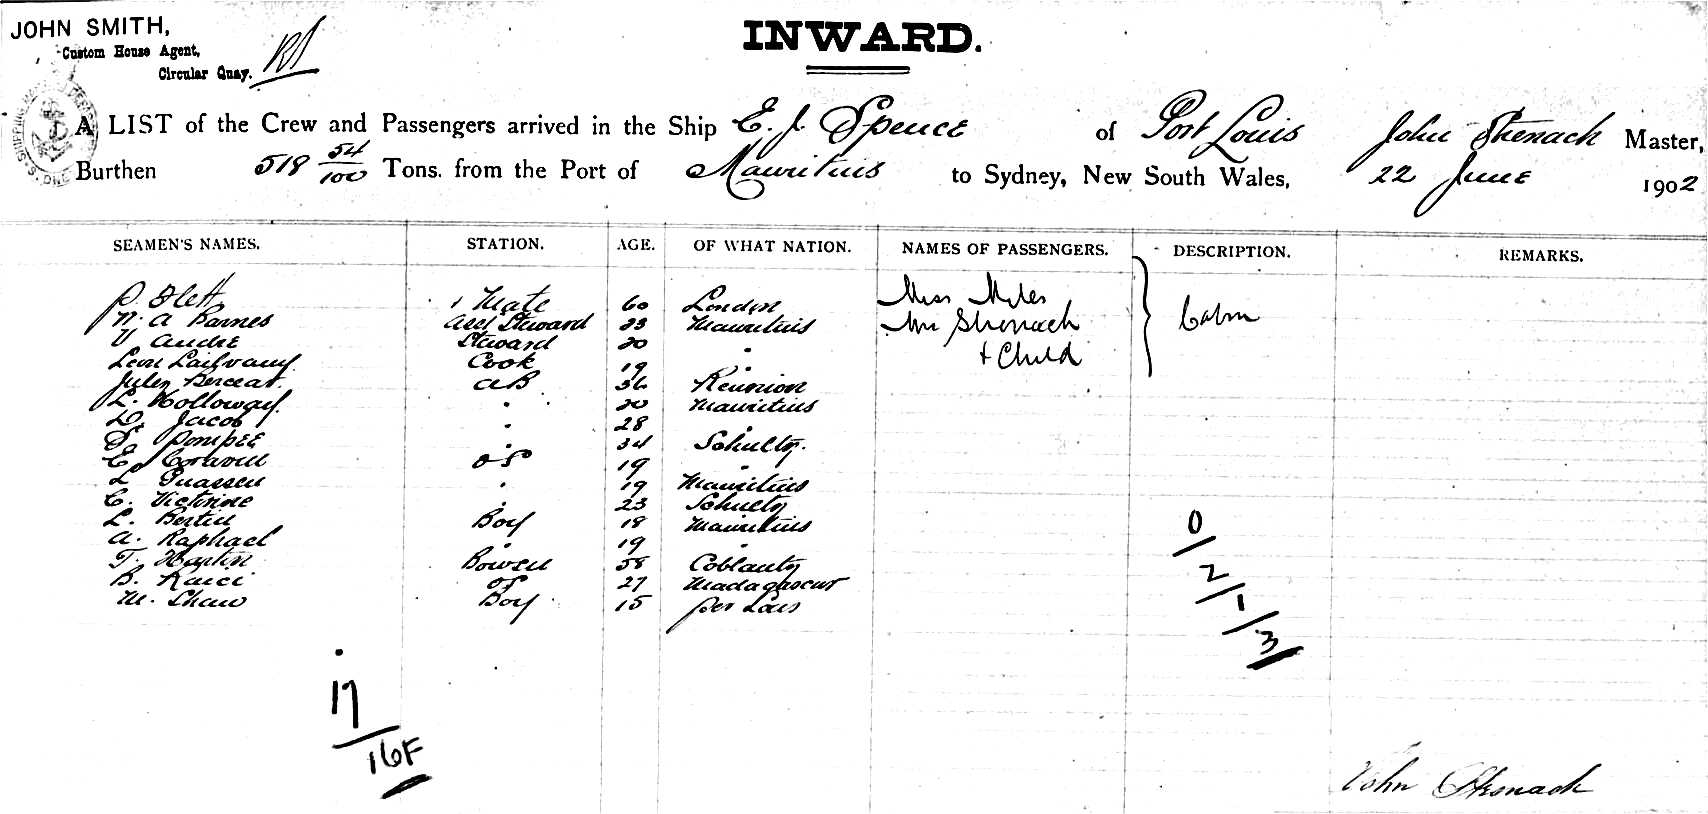 JOHN SMITH,
Custom House Agent,
Circular Quay.
INWARD.
A LIST of the Crew and Passengers arrived in the Ship E. J. Spence of Port Louis John Shenach Master,
Burthen 518 54/100 Tons. from the Port of Mauritius to Sydney, New South Wales, 22 June 1902
SEAMEN'S NAMES. STATION. AGE. OF WHAT NATION. NAMES OF PASSENGERS. DESCRIPTION. REMARKS.
P. Flett 1 Mate 60 London Miss Myles
N. A Barnes Asst Steward 23 Mauritius Mrs Shenach Cabin
V André Steward 20 "
+ Child
Cook 19 "
Jules AB 36 Reunion
L. Holloway " 20 Mauritius
D. Jacob " 28 "
Pompée " 34
E. OS 19 "
L " 19 Mauritius
C. Victorine " 23
L. Bertin Boy 18 Mauritius
A. Raphael " 19 "
T. Martin 58
B. OS 27 Madagascar
M. Shaw Boy 15
0/
2/1/3
17/
16F
John Shenach